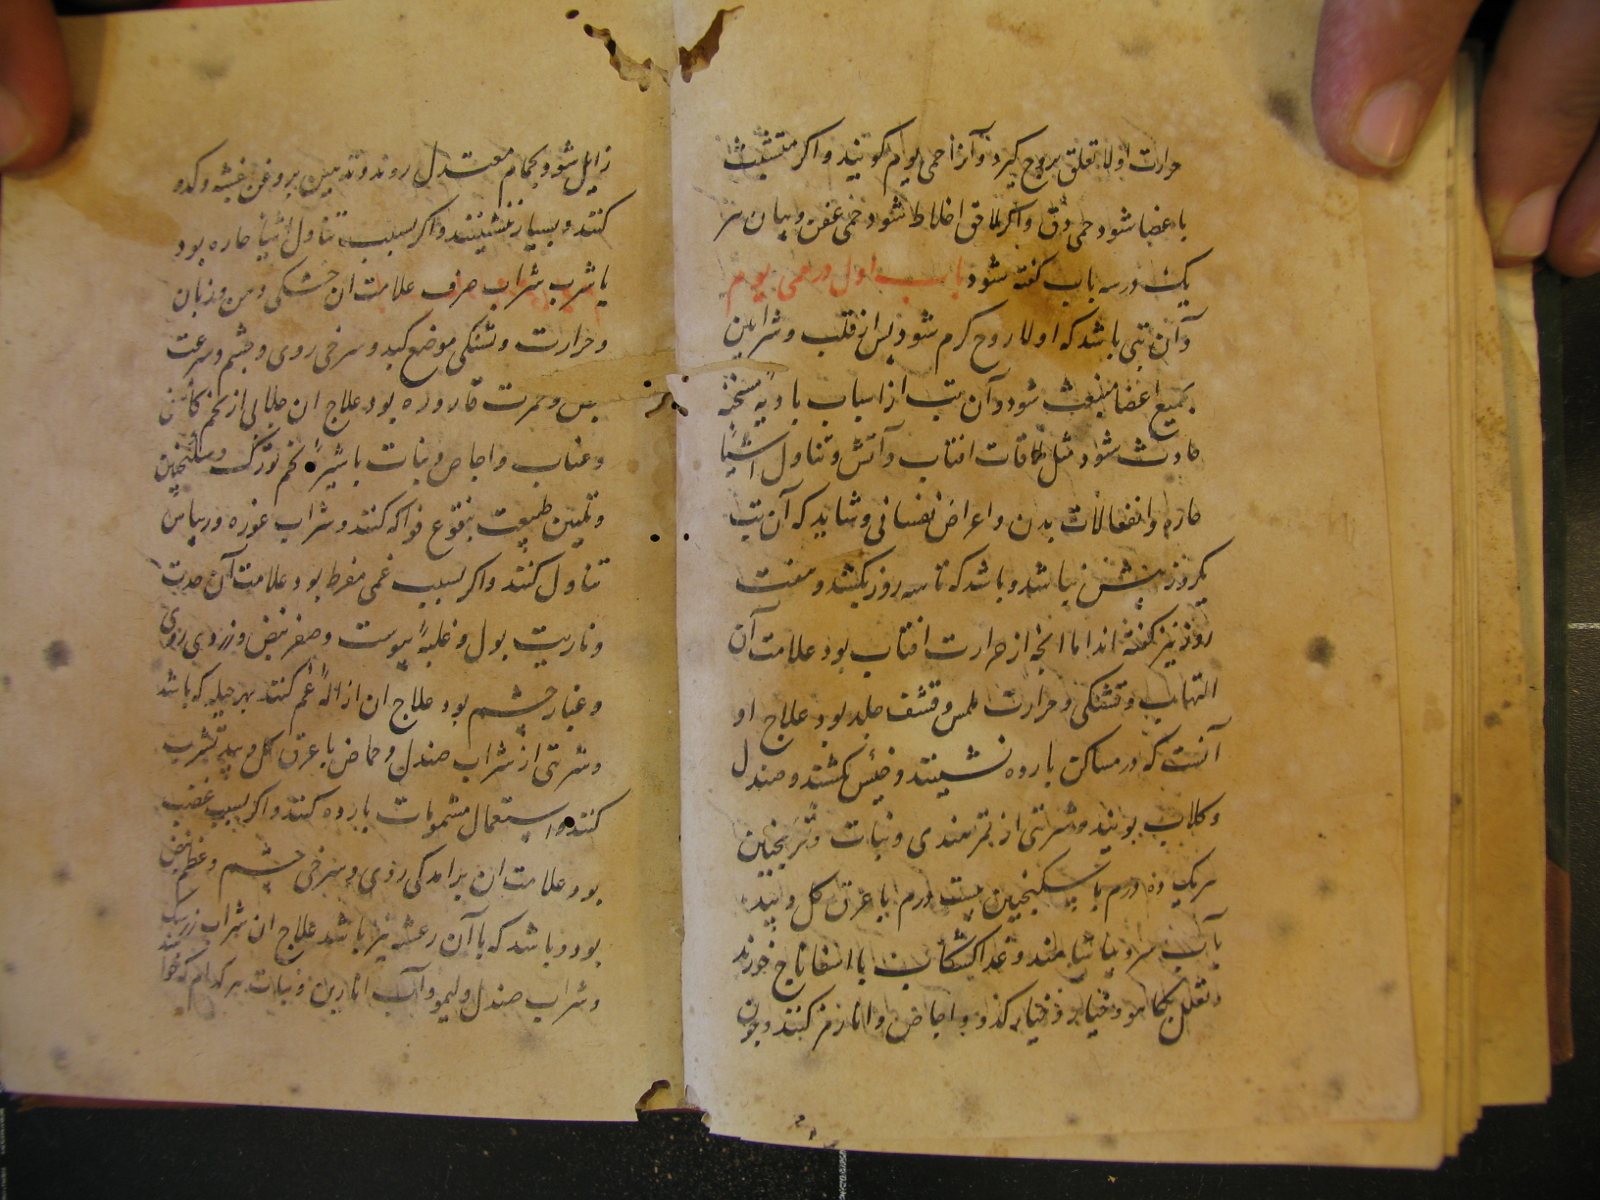 حرارت اولا تعلق بروح کیرد و آنرا حمی یوم کویند و اکر متشبث
باعضا شود حمی دق و اکر ملاقی اخلاط شود حمی عفن و بیان هر
یک در سه باب کفته شود باب اول در حمی یوم
و آن تبی باشد که اولا روح کرم شود پس از قلب و شرایین
بجمیع اعضا منبعث شود و آن تب از اسباب بادیه مسخنه
حادث شود مثل ملاقات افتاب و آتش و تناول اشیا
حاره و انفعالات بدن و اعراض نفسانی و شاید که آن تب
یکروز بیش نباشد و باشد که تا سه روز بکشد و هفت
روز نیز کفته اند اما انچه از حرارت افتاب بود علامت آن
التهاب و تشنکی و حرارت ملمس و قشف جلد بود علاج او
آنست که در مساکن بارده نشینند و خیش کشند و صندل
و کلاب بویند و شربتی از تمر هندی و نبات و ترنجبین
هر یک ده درم با سکنجبین بیست درم با عرق کل و بید
بآب سرد بیاشامند و غذا کشکاب با اسفاناخ خورند
و تنقل بکاهو و خیار و کدو و اجاص و انار مز کنند و چون
زایل شود بحمام معتدل روند و تدهین بروغن بنفشه و کدو
کنند و بسیار ننشینند و اکر بسبب تناول اشیا حاره بود
یا شرب شراب صرف علامت ان خشکی دهن و زبان
و حرارت و تشنکی موضع کبد و سرخی روی و چشم و سرعت
نبض و حمرت قاروره بود علاج ان جلابی از تخم کاسنی
و عناب و اجاص و نبات با شیره تخم تورک و سکنجبین
و تلیین طبیعت بنقوع فواکه کنند و شراب غوره و ریباس
تناول کنند و اکر بسبب غمی مفرط بود علامت آن حدت
و ناریت بول و غلبه یبوست و صغر نبض و زردی روی
و غبار چشم بود علاج ان ازاله غم کنند بهر حیله که باشد
و شربتی از شراب صندل و حماض با عرق کل و بید شرب
کنند و استعمال مشمومات بارده کنند و اکر بسبب غضب
بود علامت ان برامدکی روی و سرخی چشم و عظم نبض
بود و باشد که با آن رعشه نیز باشد علاج ان شراب زرشک
و شراب صندل و لیمو و آب انارین و نبات هر کدام که خواهند